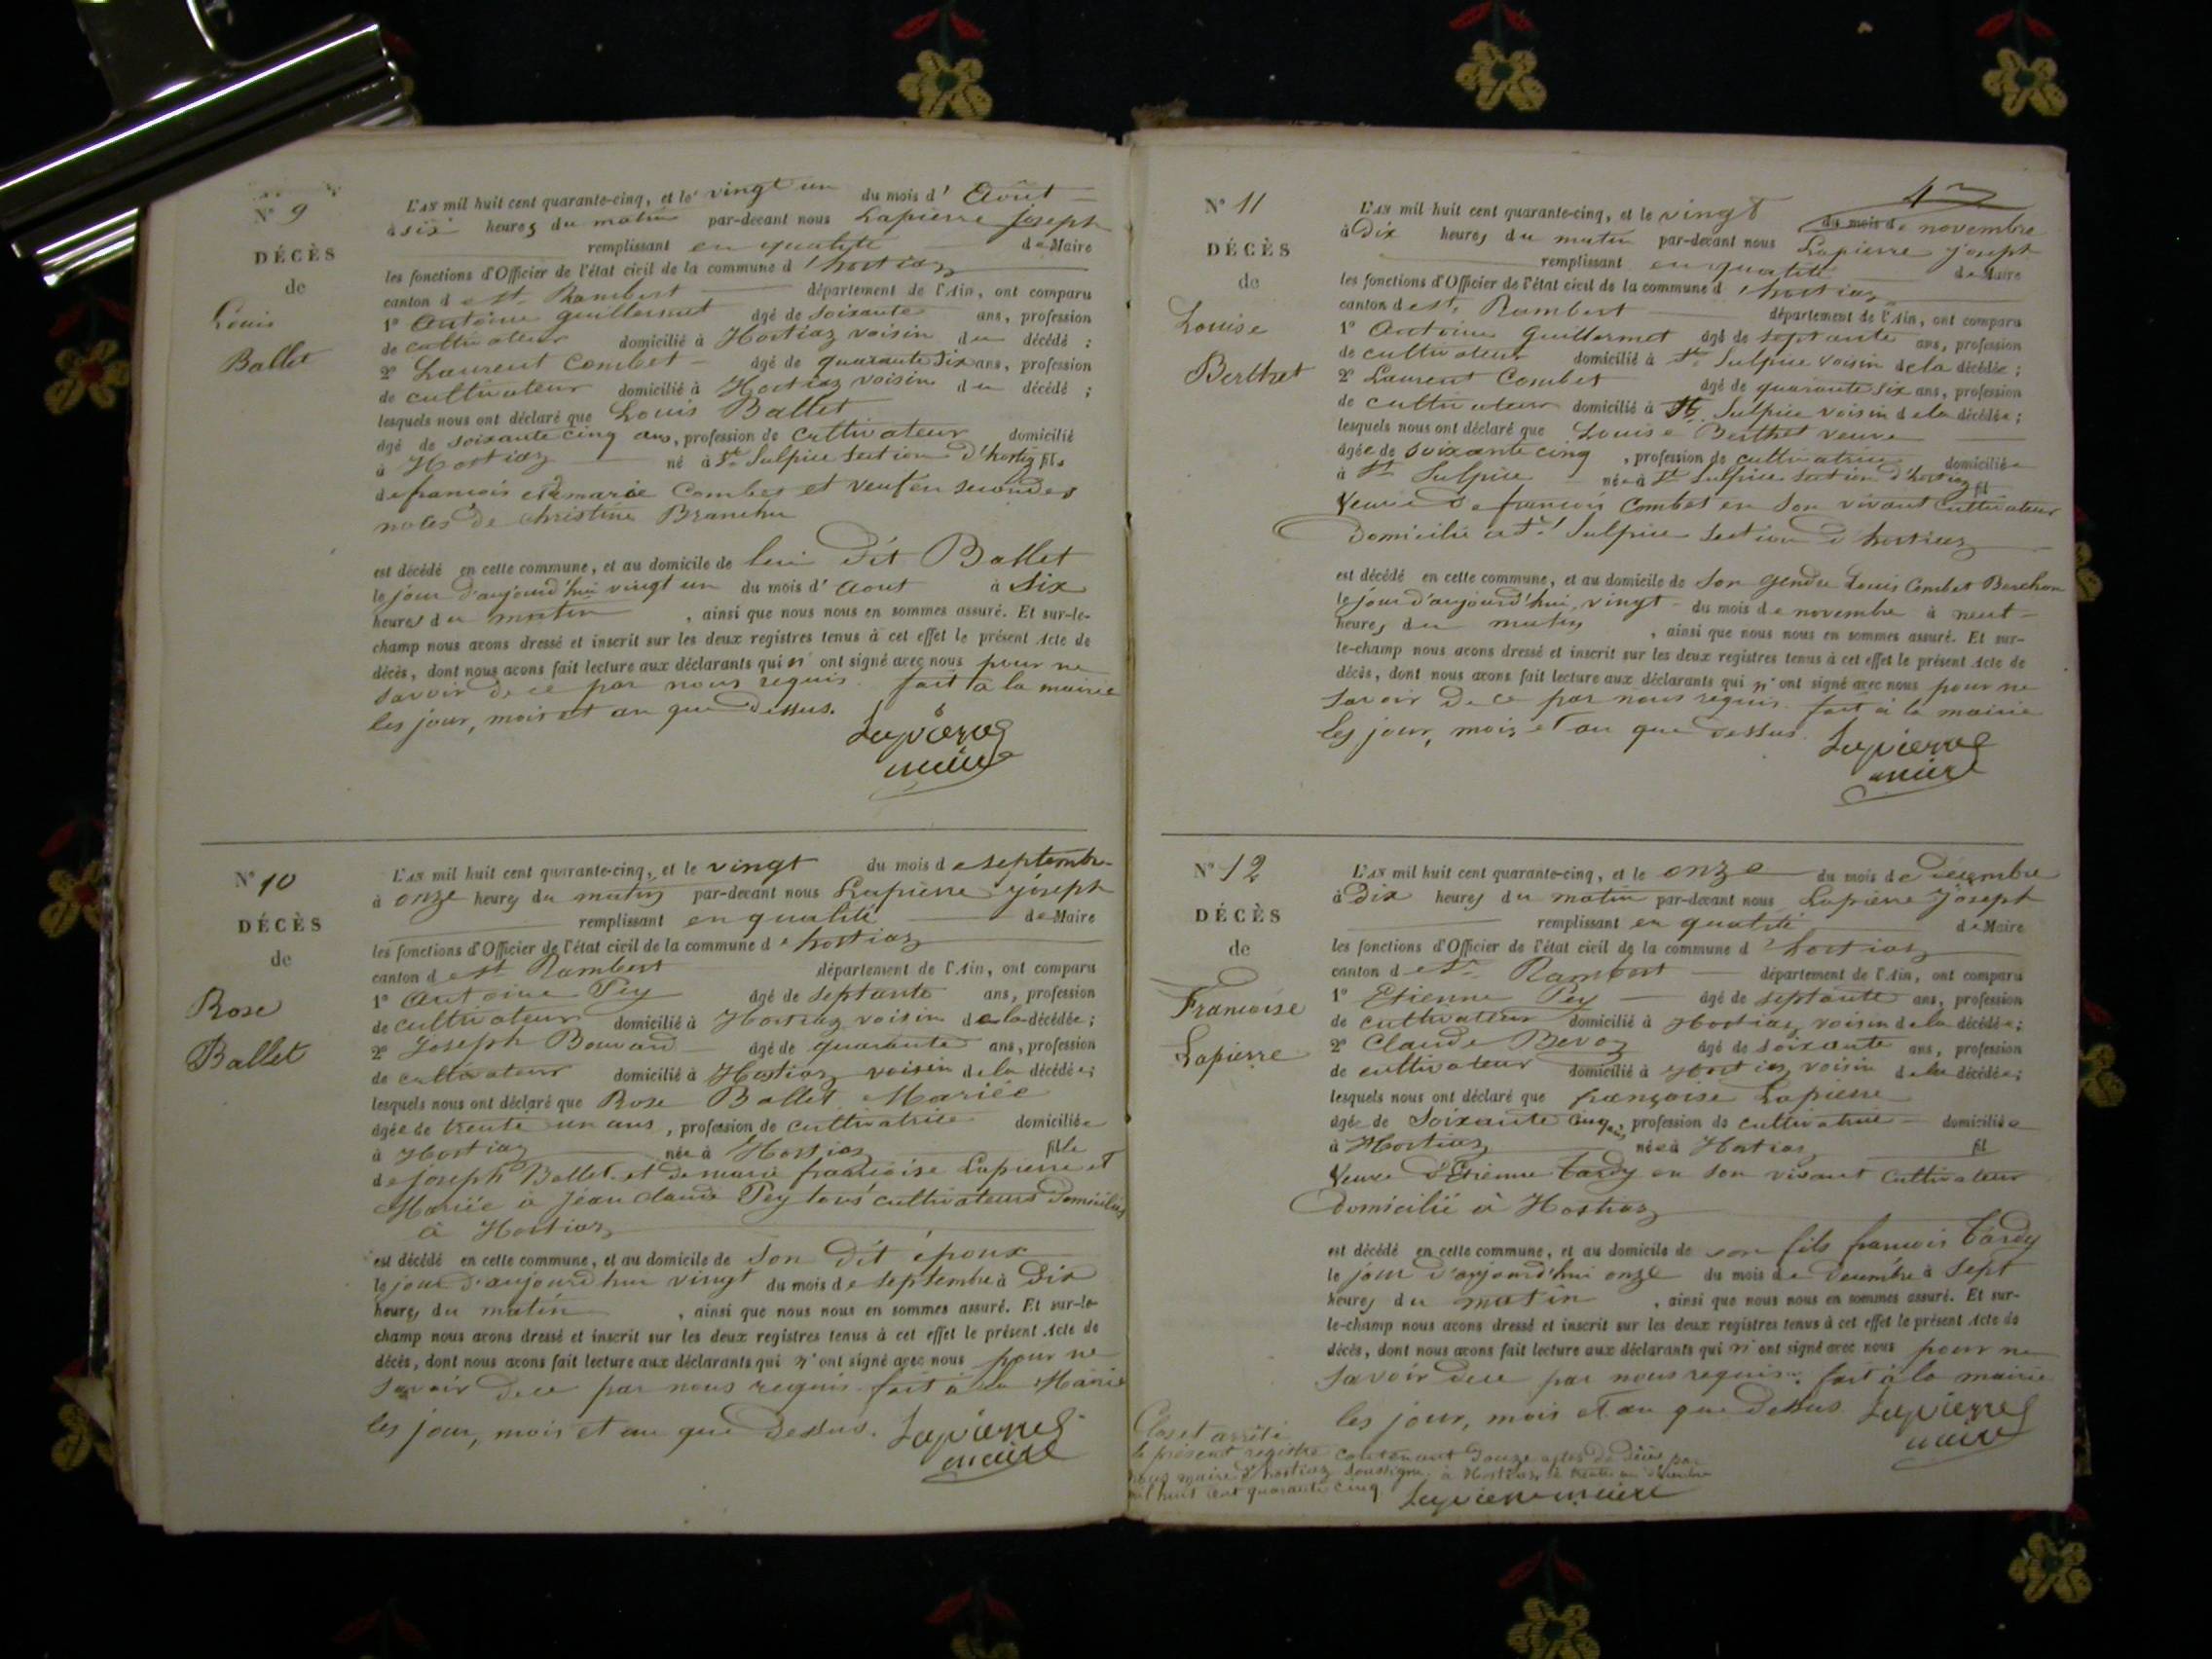 N° 9
DÉCÈS
de
Louis
Ballet
L'AN mil huit cent quarante-cinq, et le vingt un du mois d' Août
à six heures du matin par-devant nous Lapierre joseph
remplissant en qualité de Maire
les fonctions d'Officier de l'état civil de la commune d'hostiaz
canton de st Rambert département de l'Ain, ont comparu
1° Antoine guillermet âgé de soixante ans, profession
de cultivateur domicilié à Hostiaz voisin du décédé ;
2° Laurent Combet âgé de quarante six ans, profession
de cultivateur domicilié à Hostiaz voisin du décédé ;
lesquels nous ont déclaré que Louis Ballet
âgé de soixante cinq ans, profession de cultivateur domicilié
à Hostiaz né à St Sulpice section d'hostiz fils
de francois et de marie Combet et veuf en secondes
noces de Christine Branche
est décédé en cette commune, et au domicile de lui dit Ballet
le jour d'aujourd'hui vingt un du mois d' aout à six
heures du matin , ainsi que nous nous en sommes assuré. Et sur-le-
champ nous avons dressé et inscrit sur les deux registres tenus à cet effet le présent Acte de
décès, dont nous avons fait lecture aux déclarants qui n'ont signé avec nous pour ne
savoir de ce par nous requis. fait à la mairie
les jour, mois et an que dessus.
Lapierre
maire
N° 10
DÉCÈS
de
Rose
Ballet
L'AN mil huit cent quarante-cinq, et le vingt du mois de septembre
à onze heures du matin par-devant nous Lapierre joseph
remplissant en qualité de Maire
les fonctions d'Officier de l'état civil de la commune d'hostiaz
canton de st Rambert département de l'Ain, ont comparu
1° Antoine Pey âgé de septante ans, profession
de cultivateur domicilié à Hostiaz voisin de la décédée ;
2° Joseph Bouvard âgé de quarante ans, profession
de cultivateur domicilié à Hostiaz voisin de la décédée ;
lesquels nous ont déclaré que Rose Ballet Mariée
âgée de trente un ans, profession de cultivatrice domiciliée
à Hostiaz née à Hostiaz fille
de joseph Ballet et de marie francoise Lapierre et
Mariée à jean claude Pey tous cultivateurs domiciliés
à Hostiaz
est décédé en cette commune, et au domicile de son dit époux
le jour d'aujourd'hui vingt du mois de septembre à Dix
heures du matin , ainsi que nous nous en sommes assuré. Et sur-le-
champ nous avons dressé et inscrit sur les deux registres tenus à cet effet le présent Acte de
décès, dont nous avons fait lecture aux déclarants qui n'ont signé avec nous pour ne
savoir de ce par nous requis. fait à la Mairie
les jour, mois et an que dessus.
Lapierre
maire
N° 11
DÉCÈS
de
Louise
Berthet
L'AN mil huit cent quarante-cinq, et le vingt du mois de novembre
à Dix heures du matin par-devant nous Lapierre joseph
remplissant en qualité de Maire
les fonctions d'Officier de l'état civil de la commune d'hostiaz
canton de st Rambert département de l'Ain, ont comparu
1° Antoine Guillermet âgé de septante ans, profession
de cultivateur domicilié à St Sulpice voisin de la décédée ;
2° Laurent Combet âgé de quarante six ans, profession
de cultivateur domicilié à St Sulpice voisin de la décédée ;
lesquels nous ont déclaré que Louise Berthet veuve
âgée de soixante cinq , profession de cultivatrice domiciliée
à St Sulpice née à St Sulpice section d'hostiaz fil
Veuve de francois Combet en son vivant cultivateur
Domicilié à St Sulpice section d'hostiaz
est décédé en cette commune, et au domicile de son gendre Louis Combet Berchon
le jour d'aujourd'hui vingt du mois de novembre à neuf
heures du matin , ainsi que nous nous en sommes assuré. Et sur-
le-champ nous avons dressé et inscrit sur les deux registres tenus à cet effet le présent Acte de
décès, dont nous avons fait lecture aux déclarants qui n'ont signé avec nous pour ne
savoir de ce par nous requis. fait à la mairie
les jour, mois et an que dessus.
Lapierre
maire
N° 12
DÉCÈS
de
Francoise
Lapierre
L'AN mil huit cent quarante-cinq, et le onze du mois de décembre
à Dix heures du matin par-devant nous Lapierre Joseph
remplissant en qualité de Maire
les fonctions d'Officier de l'état civil de la commune d'hostiaz
canton de st Rambert département de l'Ain, ont comparu
1° Etienne Pey âgé de septante ans, profession
de cultivateur domicilié à Hostiaz voisin de la décédée ;
2° Claude Bevoz âgé de soixante ans, profession
de cultivateur domicilié à Hostiaz voisin de la décédée ;
lesquels nous ont déclaré que françoise Lapierre
âgée de soixante cinq ans, profession de cultivatrice domiciliée
à Hostiaz née à Hostiaz fil
Veuve d'Etienne Tardy en son vivant cultivateur
domicilié à Hostiaz
est décédé en cette commune, et au domicile de son fils francois Tardy
le jour d'aujourd'hui onze du mois de décembre à sept
heures du matin , ainsi que nous nous en sommes assuré. Et sur-
le-champ nous avons dressé et inscrit sur les deux registres tenus à cet effet le présent Acte de
décès, dont nous avons fait lecture aux déclarants qui n'ont signé avec nous pour ne
savoir de ce par nous requis. fait à la mairie
les jour, mois et an que dessus.
Lapierre
maire
Clos et arrêté
le présent registre contenant douze actes de décès par
nous maire d'hostiaz soussigné à Hostiaz le trente un décembre
mil huit cent quarante cinq
Lapierre maire